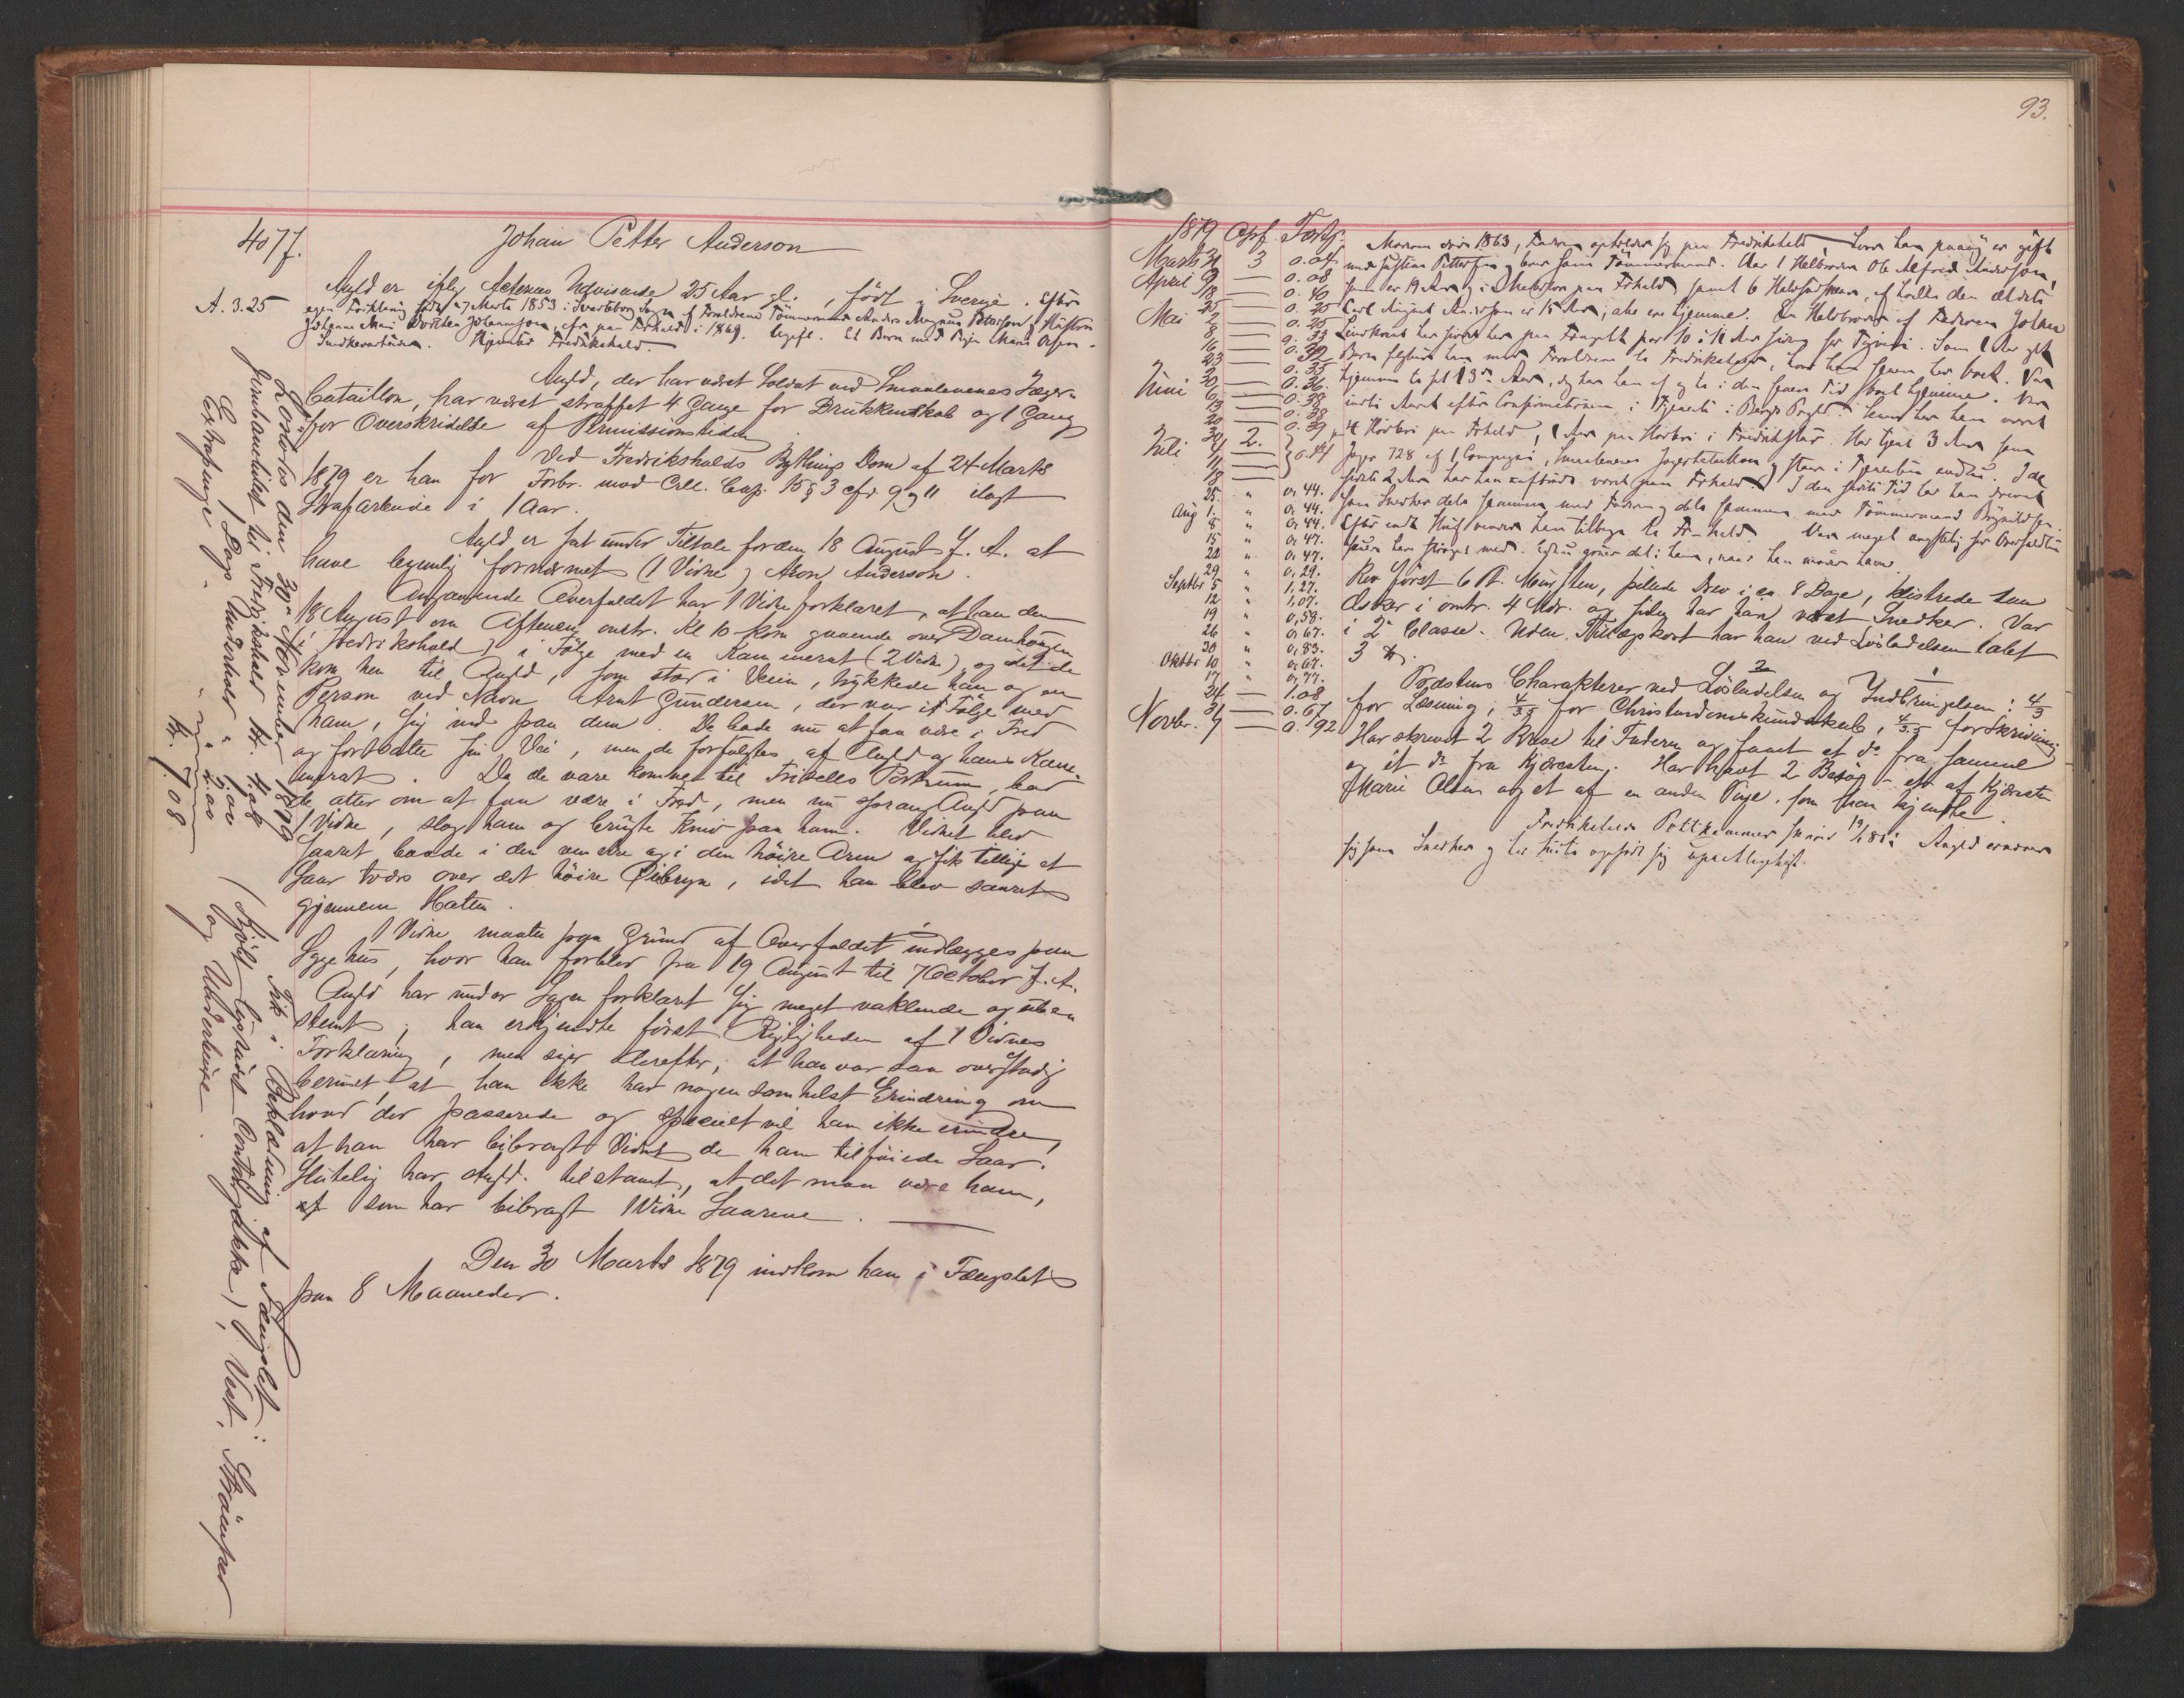 4077.
Johan Petter Anderson
A. 3.25
Angld er iflg Acternes Udvisende 25 Aar gl., født i Sverige. Efter
egen Forklaring født 27 Marts 1853 i Svarteborg Sogn af Forældrene Tömmermand Anders Magnus Petersson og Hustru
Johanne Mari Dorthea Johannesson, kom paa Frhald i 1869. Ugift. Et Barn med Pigen Maria Olsen.
Snedkerarbeider. Hjemsted Fredrikshald.
Angld, der har været Soldat ved Smaalenenes Jæger-
bataillon, har været straffet 4 Gange for Drukkenskab og 1 Gang
for Overskridelse af Permissionstiden.
Ved Fredrikshalds Bythings Dom af 24 Marts
1879 er han for Forbr. mod Crll. Cap. 15 § 3 cfr 9 og 11 ilagt
Strafarbeide i 1 Aar.
Angld er sat under Tiltale for den 18 August f. A. at
have legemlig fornærmet (1 Vidne) Aron Anderson.
Angaaende Overfaldet har 1 Vidne forklaret, at han den
18 August om Aftenen omtr. Kl 10 kom gaaende over Damhaugen
(Fredrikshald) i Følge med en Kammerat (2 Vidne), og idet de
kom hen til Angld, som stod i Veien, trykkede han og en
Person ved Navn Arnt Gundersen, der var i Følge med
ham, sig ind paa dem. De bade nu at faa være i Fred
og fortsatte sin Vei, men de forfulgtes af Angld og hans Kam-
merat. Da de vare komne til Frisells Postrum, bad
de atter om at faa være i Fred, men nu sprang Angld paa
1 Vidne, slog ham og brugte Kniv paa ham. Vidnet blev
saaret baade i den venstre og i den höire Arm og fik tillige et
Saar tvers over det höire Öiebryn, idet han blev saaret
gjennem Hatten.
1 Vidne maatte paa Grund af Overfaldet indlægges paa
Sygehus, hvor han forblev fra 19 August til 7 October f. A.
Angld har under Sagen forklaret sig meget vaklende og ube-
stemt; han erkjendte först Rigtigheden af 1 Vidnes
Forklaring, men siger derefter, at han var saa overstadig
beruset, at han ikke har nogensomhelst Erindring om
hvad der passerede og specielt vil han ikke erindre,
at han har bibragt Vidnet de ham tilföiede Saar.
Slutelig har Angld. tilstaaet, at det maa være ham,
som har bibragt 1 Vidne Saarene.
Den 30 Marts 1879 indkom han i Fængslet
paa 8 Maaneder.
Löslodes den 30te November 1879
Jernbanebillet til Fredrikshald Kr. 4.08
1 Dags Underhold " 1,00
Extrapenge " " 2.00
Kr. 7.08
Fik i Beklædning af Fængslet:
(Kjöbt Contrajakke), Vest, Strömper
og Underbuxe.
93.
1879 Opf. Fortj.
Marts 31 3 0.04
April 9 — 0.08
18 — 0.40
25 — 0.40
Mai 2 — 0.25
9 — 0.33
16 — 0.39
23 — 0.35
30 — 0.36
Juni 6 — 0.38
13 — 0.38
20 — 0.39
30 2.
Juli 4 — 0.84
11 —
18 —
25 " 0,44.
Aug 1. " 0,44.
8 " 0,44.
15 " 0,47.
22 " 0,47.
29 " 0,29.
Septbr 5 " 1,27.
12 " 1,07.
19 " 0,58.
26 " 0,67.
30 " 0,83.
Oktbr 10 " 0,67.
17 " 0,77.
24 — 1.08
31 — 0.67
Novbr. 7 — 0.92
Moderen döde 1863, Faderen opholder sig paa Fredrikshald, hvor han paany er gift
med Justine Pettersen og lever som Tömmermand. Har 1 Helbroder Ole Alfred Anderson,
som er 19 Aar og i Arbeide paa Frhald, samt 6 Halvsödskende, af hvilke den ældste
Carl August Anderson er 15 Aar; alle ere hjemme. En Halvbroder af Faderen Johan
Lindkvist har siddet her paa Fængslet for 10 à 11 Aar siden for Tyveri. Som 1 Aar gl.
Barn flyttede han med Forældrene til Fredrikshald, hvor han siden har boet. Var
hjemme til sit 13de Aar, dog har han af og til i den senere Tid boet hjemme. Var
indtil Aaret efter Confirmationen i Tjeneste i Bergs Prgld. Siden har han været
paa et Hövleri paa Frhald, 1 Aar paa Hövleri i Fredrikstad. Har tjent 3 Aar som
Jæger 728 af 1 Compagni, Smaalenenes Jægerbataillon og staar i Tjenesten endnu. I de
sidste 2 Aar har han arbeidet paa Frhald. I den sidste Tid har han drevet
som Snedker dels sammen med Faderen og dels sammen med Tömmermand Brynildsen.
Efter endt Straf vender han tilbage til Fr-hald. Var meget angstelig for Overfaldet
siden han længes med. Egen graver det i ham, naar han mindes ham.
Rev först 6 St. Mursten, pillede Drev i ca. 8 Dage, klistrede saa
Æsker i omtr. 4 Mdr. og siden har han været Snedker. Var
i 2de Classe. Uden Tillægskost har han ved Lösladelsen talt
3 Kr.
Præstens Charakterer ved Lösladelsen og Indbringelsen: 4/3
for Læsning, 4/3.5 for Christendomskundskab, 4/3.5 for Skrivning
Har skrevet 2 Breve til Faderen og faaet et do fra samme
og et do fra Kjæresten. Har havt 2 Besög – et af Kjæresten
Marie Olsen og et af en anden Pige, som han kjendte.
Fredrikshalds Politikammer skriver 19/1 81: Angld ernærer
sig som Snedker og har hidtil opfört sig upaaklageligt.